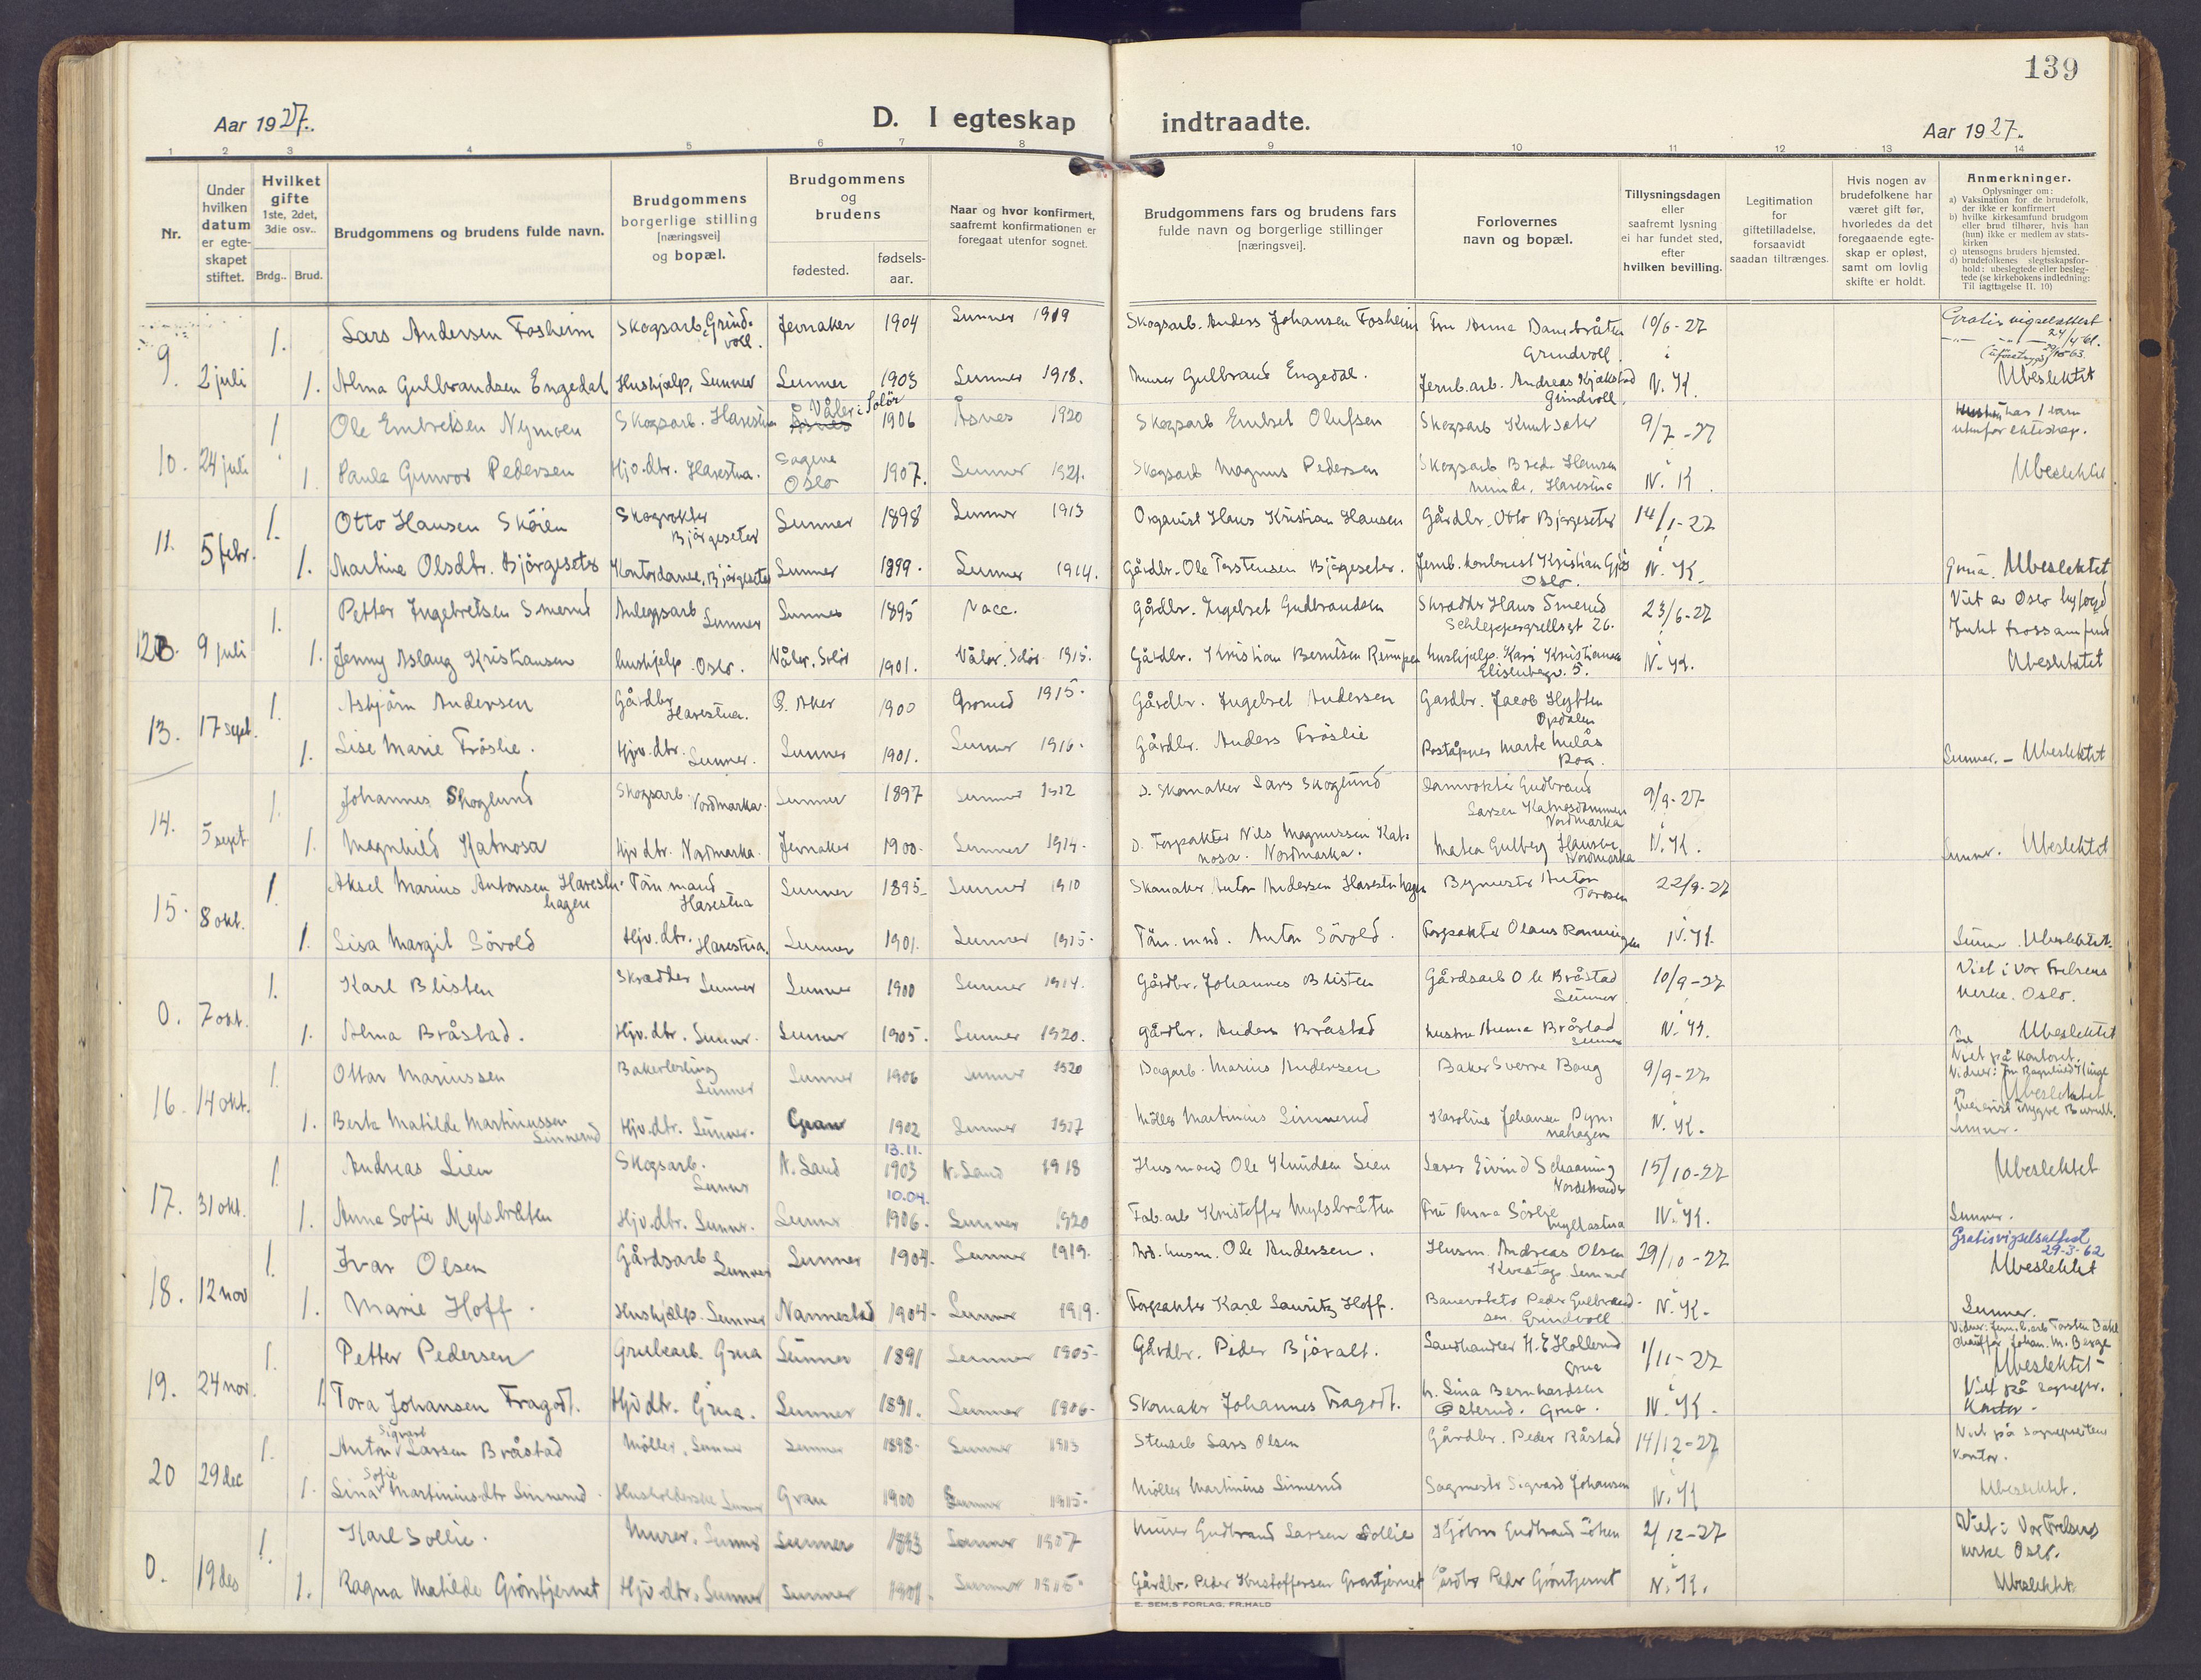 139
Aar 1927.
D. I egteskap
indtraadte.
Aar 1927.
1 2 3 4 5 6 7 8 9 10 11 12 13 14
Nr.
Under hvilken datum er egteskapet stiftet.
Hvilket gifte 1ste, 2det, 3die osv..
Brdg.. Brud.
Brudgommens og brudens fulde navn.
Brudgommens borgerlige stilling [næringsvei] og bopæl.
Brudgommens og brudens
fødested.
fødselsaar.
Naar og hvor konfirmert, saafremt konfirmationen er foregaat utenfor sognet.
Brudgommens fars og brudens fars fulde navn og borgerlige stillinger [næringsvei].
Forlovernes navn og bopæl.
Tillysningsdagen eller saafremt lysning ei har fundet sted, efter hvilken bevilling.
Legitimation for giftetilladelse, forsaavidt saadan tiltrænges.
Hvis nogen av brudefolkene har været gift før, hvorledes da det foregaaende egteskap er opløst, samt om lovlig skifte er holdt.
Anmerkninger.
Oplysninger om:
a) Vaksination for de brudefolk, der ikke er konfirmert
b) hvilke kirkesamfund brudgom eller brud tilhører, hvis han (hun) ikke er medlem av statskirken
c) utensogns bruders hjemsted.
d) brudefolkenes slegtsskapsforhold: ubeslegtede eller beslegtede (se kirkebokens indledning: Til iagttagelse II. 10)
9. 2 juli 1. Lars Andersen Fosheim Skogsarb. Grindvoll. Jevnaker 1904 Lunner 1919 Skogsarb. Anders Johansen Fosheim Fru Anna Dambråten Grindvoll. 10/6-27 Gratis vigselattest 24/4 61.
1. Alma Gulbrandsen Engedal Hushjælp, Lunner Lunner 1903 Lunner 1918. Murer Gulbrand Engedal. Jernb.arb. Andreas Kjækstad Grindvoll. i N.K. Ubeslektet
10. 24 juli 1 Ole Embretsen Nymoen Skogsarb. Harestua Åsnes Våler i Solör 1906 Åsnes 1920 Skogsarb Embret Olufsen Skogsarb Knut Sæter 9/7-27 har 1 barn utenfor ekteskap.
1. Paula Gunvor Pedersen Hjv.dtr. Harestua. Sagene Oslo 1907. Lunner 1921. Skogsarb Magnus Pedersen Skogsarb Brede Hansen Harestua i N.K. Ubeslektet.
11. 5 febr. 1. Otto Hansen Sköien Skogvokter Björgeseter Lunner 1898 Lunner 1913 Organist Hans Kristian Hansen Gårdbr. Otto Bjørgeseter 14/1-27
1. Martine Olsdtr. Björgeseter Kontordame, Björgeseter Lunner 1899. Lunner 1914. Gårdbr. Ole Torstensen Bjørgeseter. Jernb. kontorist Kristian Oslo. i N.K. Grua. Ubeslektet
12 9 juli 1. Petter Ingebretsen Smerud Anleggsarb Lunner Lunner 1895 Vacc. Gårdbr. Ingebret Gudbrandsen Skrædder Hans Smerud Schleppegrellsgt 26. 23/6-27 Viet av Oslo byfogd
1. Jenny Aslaug Kristiansen hushjelp Oslo. Våler, Solör 1901. Våler, Solör 1915. Gårdbr. Kristian Berntsen hushjælp. Kari Kristiansen 5. i N.K. Ubeslektet
13. 17 sept. 1. Asbjörn Andersen Gårdbr Harestua. Ö. Aker 1900 Grorud 1915. Gårdbr. Ingebret Andersen Gårdbr. Jacob Hytten Opdalen
1. Lise Marie Fröslie. Hjv.dtr. Lunner. Lunner 1901. Lunner 1916. Gårdbr. Anders Fröslie Poståpner Marte Melås Roa. Lunner. - Ubeslektet
14. 5 sept 1. Johannes Skoglund Skogsarb. Nordmarka. Lunner 1897 Lunner 1912 D. Skomaker Lars Skoglund Damvokter Gudbrand Larsen Katnosdammen Nordmarka 9/9-27
1. Magnhild Katnosa Hjv dtr. Nordmarka. Jevnaker 1900. Lunner 1914. D. Forpakter Nils Magnussen Katnosa. Nordmarka. Matea Gulberg Nordmarka i N.K. Lunner. Ubeslektet
15. 8 okt. 1. Aksel Marius Antonsen Harestuhagen Tömmand Harestua Lunner 1895 Lunner 1910 Skomaker Anton Andersen Harestuhagen Bygmestr Anton 22/9-27
1. Lisa Margit Sövold Hjv.dtr. Harestua. Lunner 1901. Lunner 1915. Töm.md. Anton Sövold. Forpakter Olaus Ronningen i N.K. Lunner. Ubeslektet.
0. 7 okt. 1. Karl Blisten Skrædder Lunner Lunner 1900 Lunner 1914. Gårdbr. Johannes Blisten Gårdsarb Ole Bråstad Lunner. 10/9-27 Viet i Vor Frelsers kirke. Oslo.
1. Alma Bråstad. Hjv.dtr. Lunner. Lunner 1905. Lunner 1920. Gårdbr. Anders Bråstad hustru Anna Bråstad Lunner i N.K. Ubeslektet
16. 14 okt. 1. Ottar Mariussen Bakerlerling Lunner Lunner 1906 Lunner 1920 Dagarb. Marius Andersen Baker Sverre Boug 9/9-27 Viet på kontoret.
1. Berta Matilde Martinussen Linnerud Hjv.dtr. Lunner. Gran 1902 Lunner 1917 Möller Martinius Linnerud Karoline Johansen i N.K. Ubeslektet Lunner.
17. 31 okt. 1. Andreas Lien Skogsarb. Lunner N. Land 13.11. 1903 N. Land 1918 Husmand Ole Knudsen Lien Eivind Schaaning 15/10-27 Ubeslektet
1. Anna Sofie Mylsbråten Hjv.dtr. Lunner. Lunner 10.04. 1906. Lunner 1920 Fab.arb Kristoffer Mylsbråten Fru Anna i N.K. Lunner.
18. 12 nov 1. Ivar Olsen Gårdsarb Lunner Lunner 1904. Lunner 1919. husm. Ole Andersen. Husm. Andreas Olsen Lunner 29/10-27 Gratis vigselsattest 29-3-62 Ubeslektet
1. Marie Hoff. Hushjælp. Lunner Nannestad 1904. Lunner 1919. Forpakter Karl Lauritz Hoff. Banevokter Peder Gulbrandsen. Grindvoll i N.K. Lunner.
19. 24 nov. 1. Petter Pedersen Grubearb. Grua Lunner 1891 Lunner 1905 Gårdbr. Peder Björalt. Landhandler H.E Hollerud Grua 1/11-27 Vidner: Jernb.arb Torsten Dahl Chauffør Johan. M. Berge Ubeslektet
1. Tora Johansen Fragodt. Hjv dtr. Grua. Lunner 1891. Lunner 1906. Skomaker Johannes Fragodt. h. Lina Bernhardsen Østerud. Grua. i N.K. Viet på sognepr. Kontor.
20 29 dec 1. Anton Sigvart Larsen Bråstad Møller, Lunner Lunner 1898. Lunner 1913 Stenarb Lars Olsen Gårdbr. Peder Råstad 14/12-27 Viet på sogneprestens kontor.
1. Lina Sofie Martinius.dtr Linnerud. Husholderske Lunner Gran 1900 Lunner 1915. Möller Martinius Linnerud Sagmestr Sigvard Johansen i N.K Ubeslektet.
0. 19 des 1. Karl Sollie. Murer. Lunner Lunner 1893 Lunner 1907 Murer Gudbrand Larsen Sollie Gudbrand 2/12-27 Viet i Vor Frelsers kirke Oslo.
1. Ragna Matilde Gröntjernet Hjv.dtr. Lunner Lunner 1901. Lunner 1915. Gårdbr. Peder Kristoffersen Grøntjernet Gårdbr Peder Gröntjernet i N.K. Ubeslektet
E. SEM,S FORLAG, FR.HALD